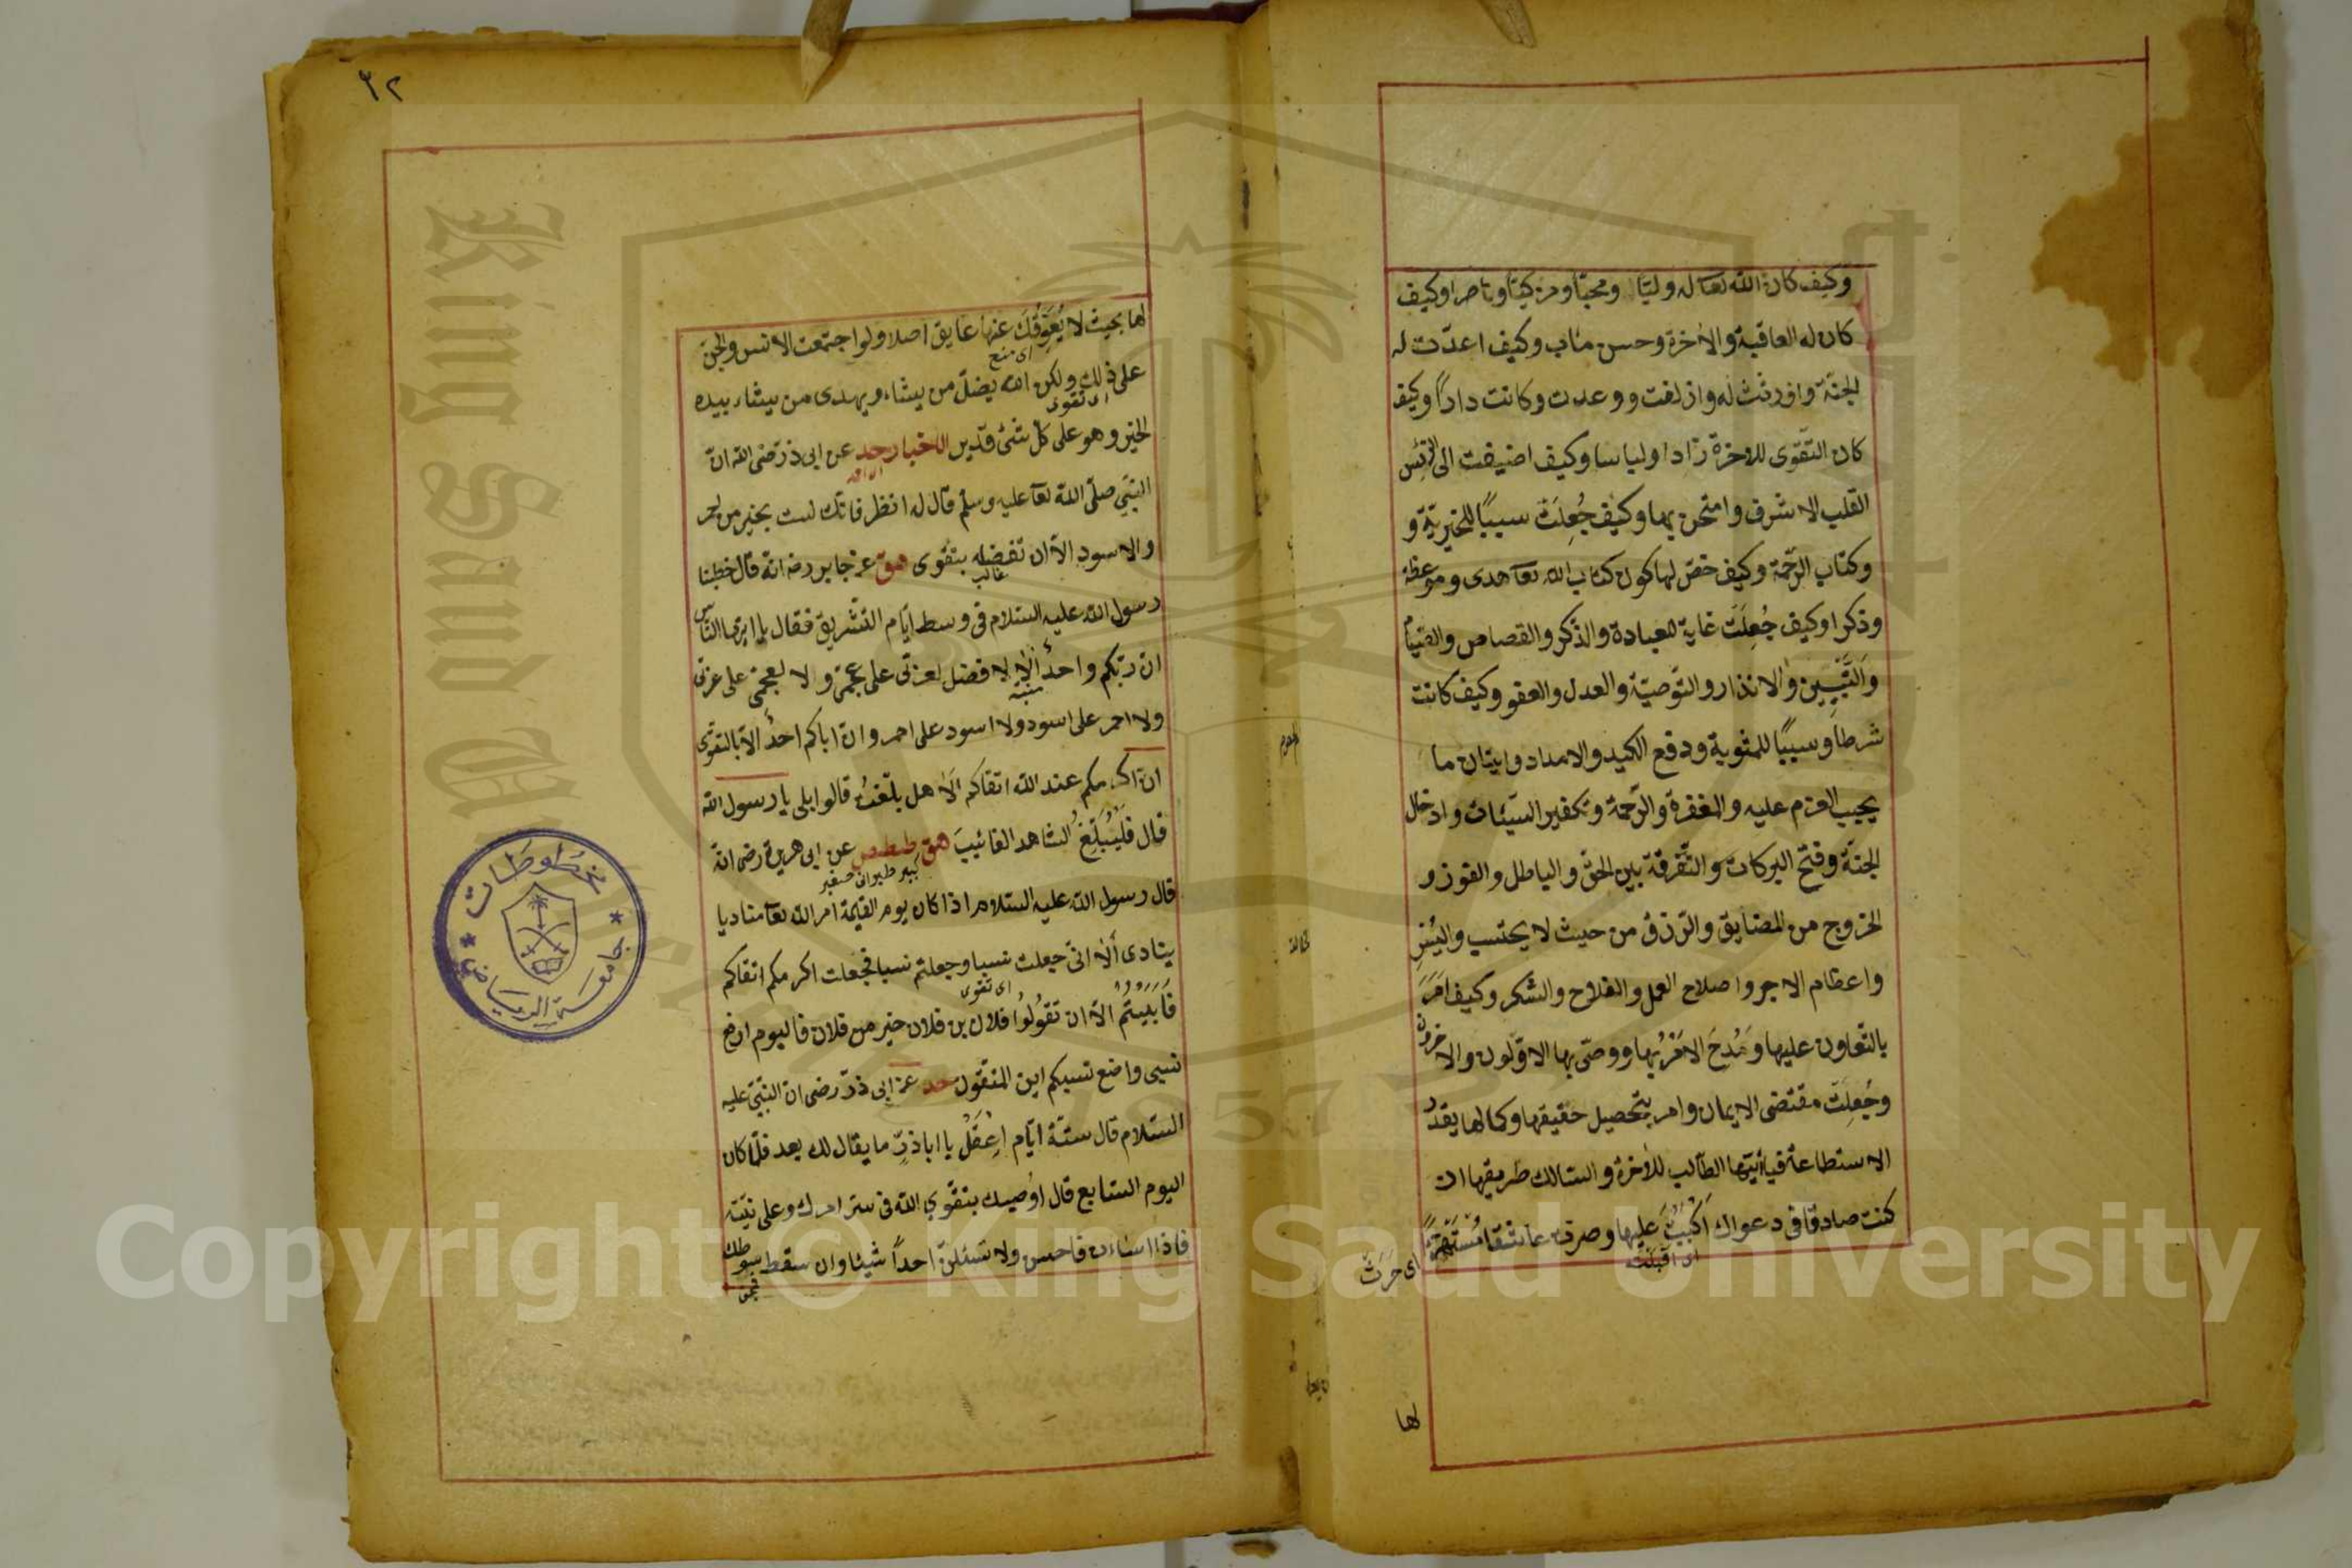 وكيف كان الله تعا له وليّا ومحبّا ومزكيّا وناصرا وكيف
كان له العاقبة والآخرة وحسن مئاب وكيف اعدّت له
الجنّة واورثت له وازلفت ووعدت وكانت داراً وكيف
كان التّقوى للآخرة زادا ولباسا وكيف اضيفت الى الرّئيس
القلب الاشرف وامتحن بها وكيف جُعِلَتْ سبباً للخيريّة و
وكتاب الرّحمة وكيف خصّ لها كون كتاب الله تعا هدى وموعظة
وذكرا وكيف جُعِلَتْ غاية للعبادة والذّكر والقصاص والصّيام
والتّبيين والانذار والتّوصيّة والعدل والعفو وكيف كانت
شرطا وسبباً للمثوبة ودفع الكيد والامداد واتيان ما
يجيب العزم عليه والمغفرة والرّحمة وتكفير السّيّئات وادخال
الجنّة وفتح البركات والتّفرقة بين الحقّ والباطل والفوز و
الخروج من المضايق والرّزق من حيث لا يحتسب واليُسْرِ
واعظام الاجر واصلاح العمل والفلاح والشكر وكيف اَمَرَ
بالتّعاون عليها ومُدِحَ الامْرُ بها ووصّى بها الاوّلون والآخرون
وجُعِلَتْ مقتضى الايمان وامر بتحصيل حقيقها وكمالها بقدر
الاستطاعة فيا أيّتها الطّالب للآخرة والسّالك طريقها ان
كنت صادقا في دعواك اَكْبَبْتَ عليها وصرت عاشقا مُسْتَهْتَراً
اى اقبلت
اى حَرَت
لها
٣٢
لها بحيث لا يُعَوِّقُكَ عنها عايق اصلا ولو اجتمعت الانس والجنّ
اى منع
على ذلك ولكن الله يضلّ من يشاء ويهدى من يشاء بيده
اى تقوى
الخير وهو على كلّ شئ قدير الاخبار حد عن ابى ذرّ رضى الله انّ
النّبىّ صلّى الله تعا عليه وسلّم قال له انظر فانّك لست بخير من احمر
والاسود الاّ ان تفضله بتقوى هق عن جابر رضه انّه قال خطبنا
غالب
رسول الله عليه السّلام فى وسط ايّام التّشريق فقال يا ايّها النّاس
انّ ربّكم واحدٌ اَلاَ لا فضل لعربىّ على عجمىّ ولا لعجمىّ على عربىّ
منبّه
ولا احمر على اسود ولا اسود على احمر وانّ اباكم احدٌ الاّ بالتقوى
انّ اكرمكم عند الله اتقاكم اَلاَ هل بلّغتُ قالوا بلى يا رسول الله
قال فليُبَلِّغ الشاهد الغائبَ هق طط‍ص عن ابى هريرة رضى انّه
كبير طبرانى صغير
قال رسول الله عليه السّلام اذا كان يوم القيمة امر الله تعا مناديا
ينادى اَلاَ انّى جعلت نسبا وجعلتم نسبا فجعلت اكرمكم اتقاكم
اى تقوى
فَاَبَيْتُمْ الاّ ان تقولُوا فلان بن فلان خير من فلان فاليوم ارفع
نسبى واضع نسبكم اين المتّقون حد عن ابى ذرّ رضى ان النّبىّ عليه
السّلام قال ستّة ايّام اِعْقَلْ يا اباذرّ ما يقال لك بعد فلمّا كان
اليوم السّابع قال اوُصيك بتقوى الله فى سرّ امرك وعلى نيّته
فاذا اسأت فاحسن ولا تسئلنّ احداً شيئا وان سقط سوطك
مخطوطات
جامعة الرياض
King Saud University
1957
Copyright © King Saud University